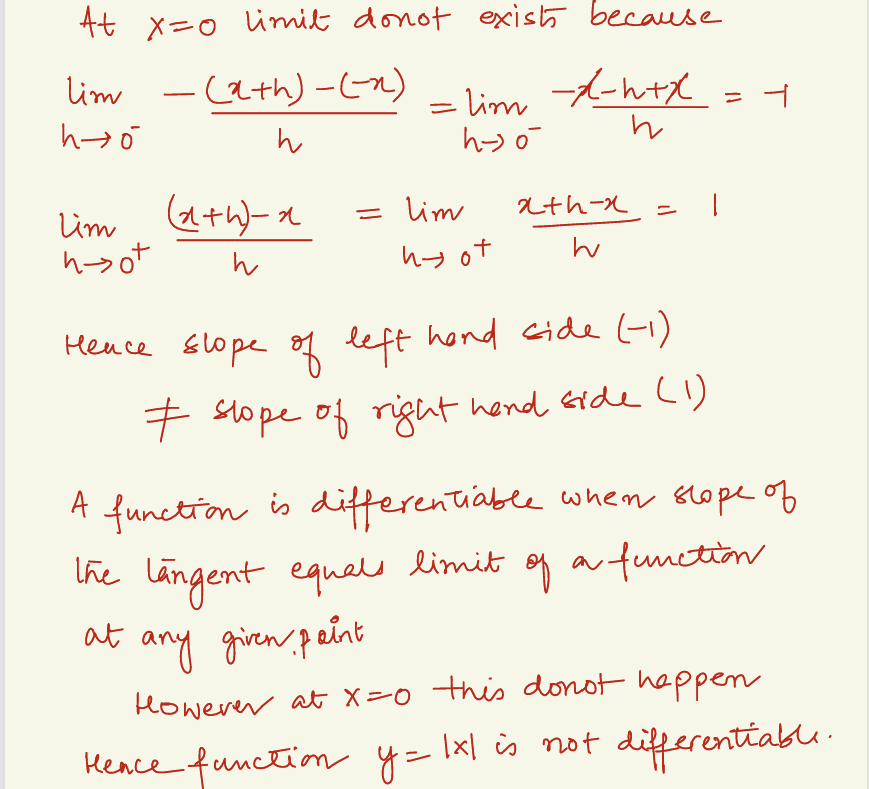 At x=0 limit donot exists because
lim h→0⁻ −(x+h)−(−x) / h = lim h→0⁻ −x−h+x / h = −1
lim h→0⁺ (x+h)−x / h = lim h→0⁺ x+h−x / h = 1
Hence slope of left hand side (−1)
≠ slope of right hand side (1)
A function is differentiable when slope of
the tangent equals limit of a function
at any given point
However at x=0 this donot happen
Hence function y=|x| is not differentiable.